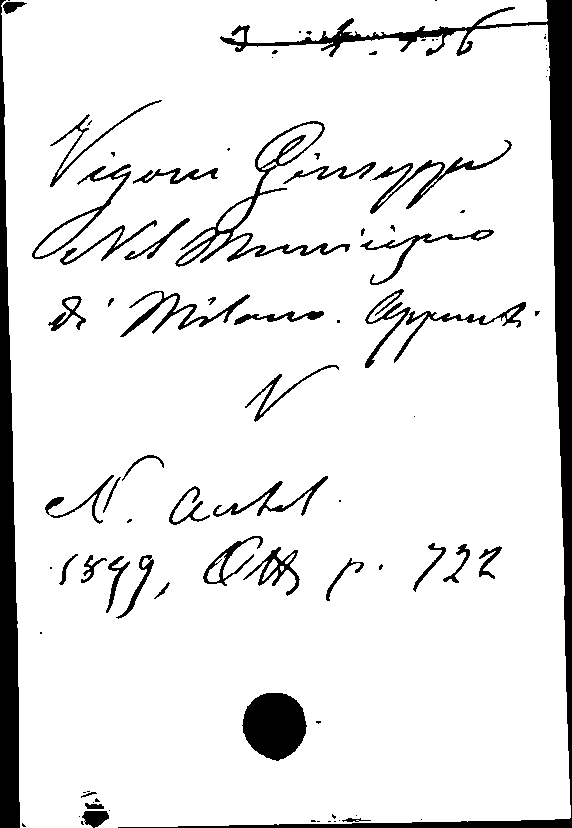 3. 4. 456
Vigoni Giuseppe
Nel Municipio
di Milano. Appunti.
V
N. Antol.
1899, Ott p. 722